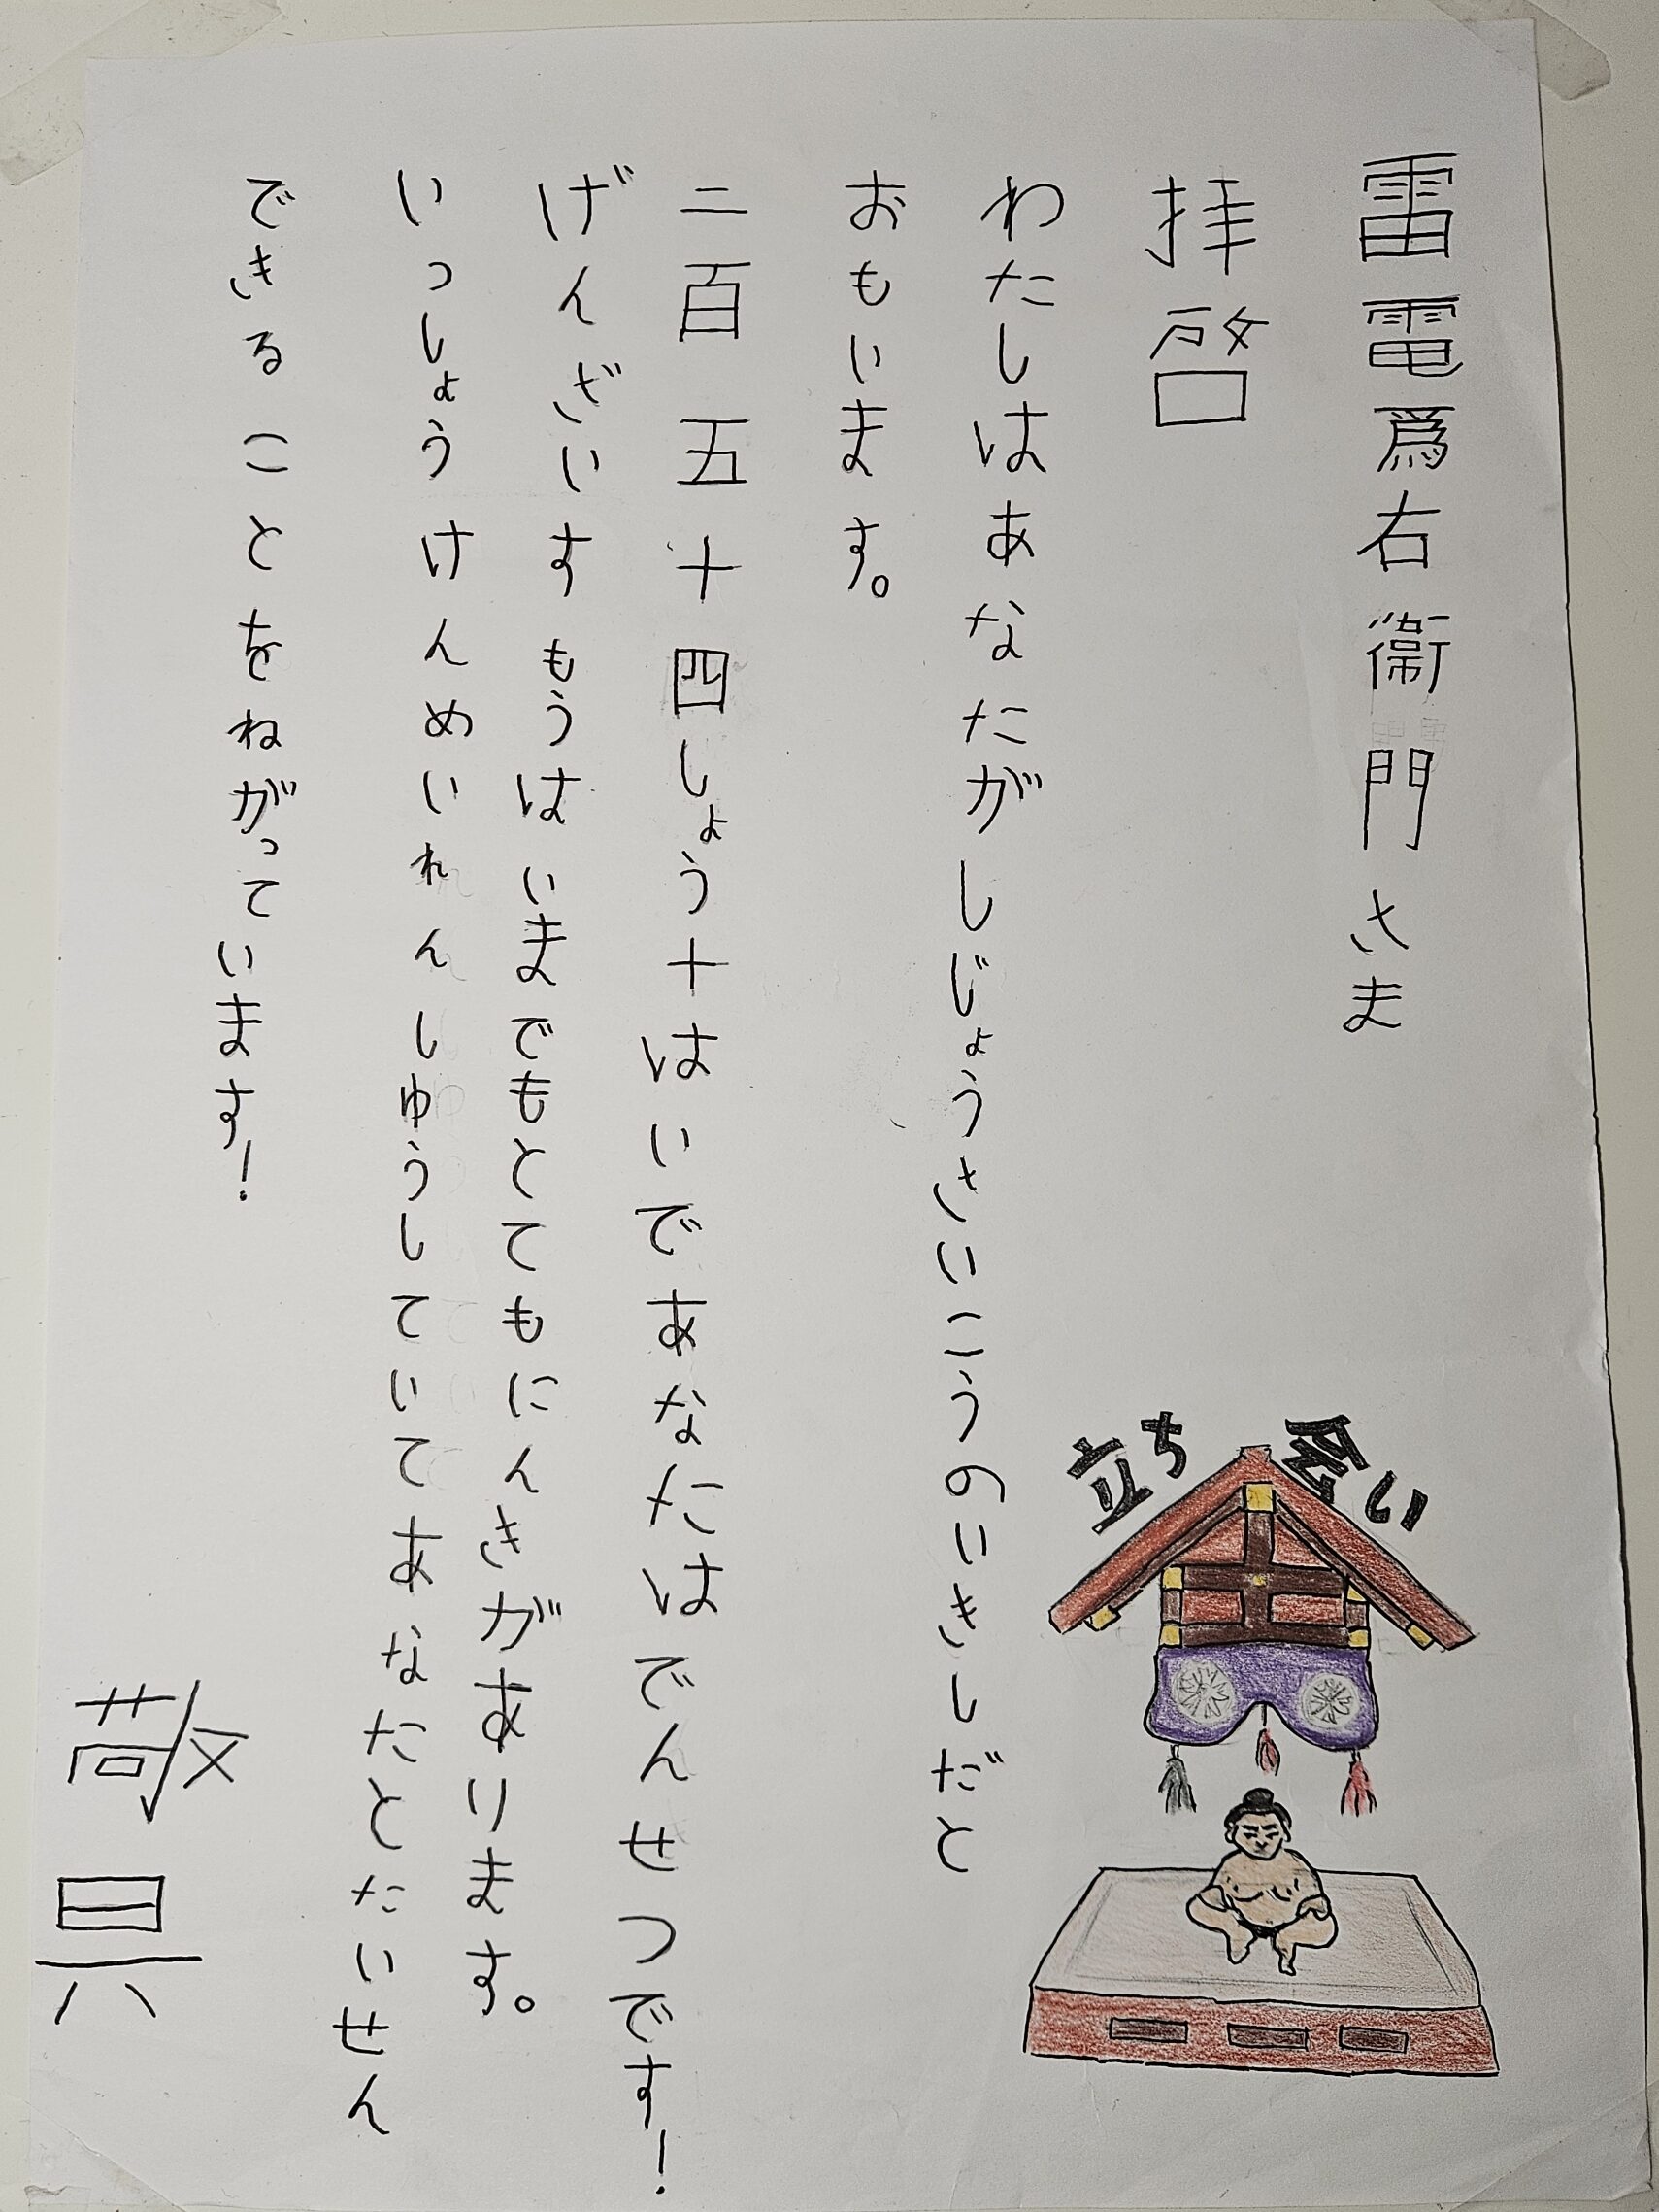 雷電爲右衞門さま
拝啓
わたしはあなたがしじょうさいこうのいきしだと
おもいます。
二百五十四しょう十はいであなたはでんせつです!
げんざいすもうはいまでもとてもにんきがあります。
いっしょうけんめいれんしゆうしていてあなたとたいせん
できることをねがっています!
敬具
立ち会い